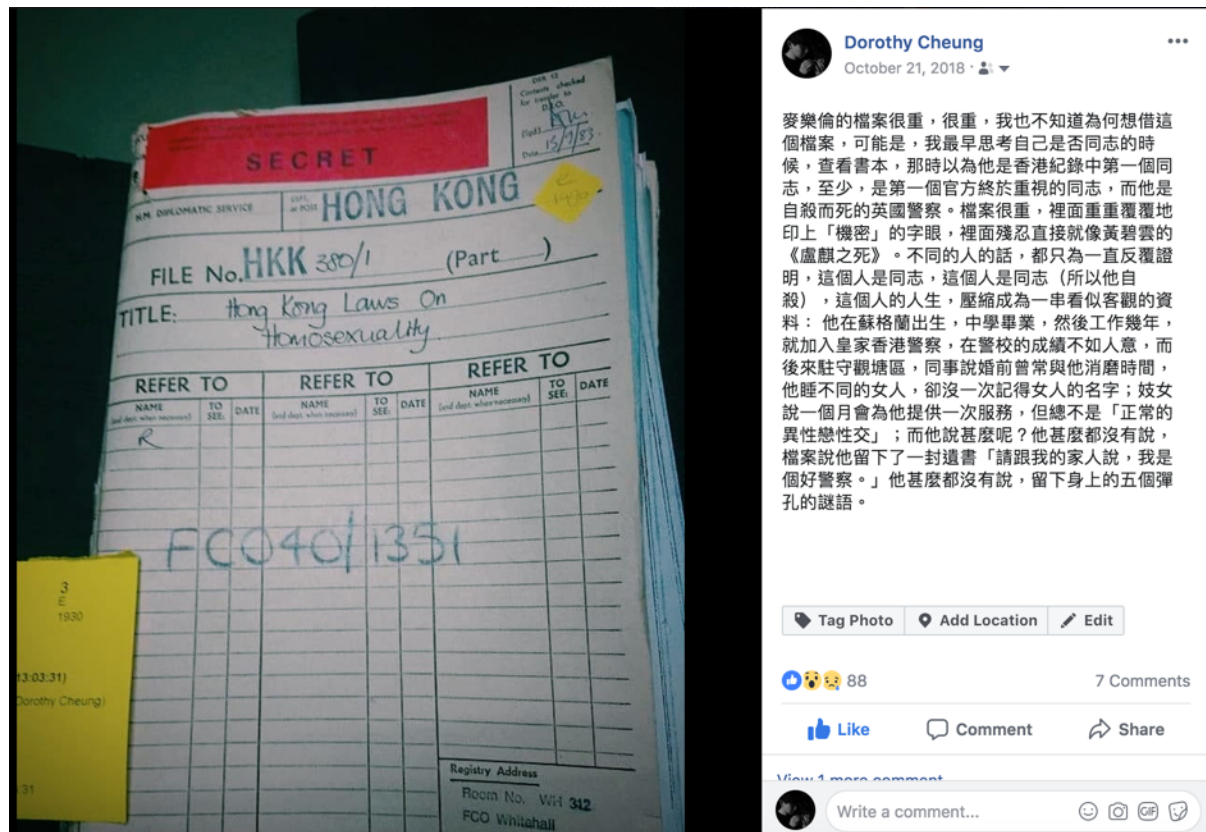 SECRET
DER 12
Contents checked
for transfer to
D.R.O.
(Sgd.)
Date 15/9/83
H.M. DIPLOMATIC SERVICE
DEPT.
or POST
HONG KONG
FILE No. HKK 380/1 (Part )
TITLE: Hong Kong Laws On
Homosexuality
REFER TO REFER TO REFER TO
NAME TO SEE: DATE NAME TO SEE: DATE NAME TO SEE: DATE
(and dept. when necessary) (and dept. when necessary) (and dept. when necessary)
R
FCO40/1351
3
E
1930
13:03:31)
Dorothy Cheung)
:31
Registry Address
Room No. WH 312
FCO Whitehall
Dorothy Cheung
October 21, 2018
麥樂倫的檔案很重,很重,我也不知道為何想借這
個檔案,可能是,我最早思考自己是否同志的時
候,查看書本,那時以為他是香港紀錄中第一個同
志,至少,是第一個官方終於重視的同志,而他是
自殺而死的英國警察。檔案很重,裡面重重覆覆地
印上「機密」的字眼,裡面殘忍直接就像黃碧雲的
《盧麒之死》。不同的人的話,都只為一直反覆證
明,這個人是同志,這個人是同志(所以他自
殺),這個人的人生,壓縮成為一串看似客觀的資
料: 他在蘇格蘭出生,中學畢業,然後工作幾年,
就加入皇家香港警察,在警校的成績不如人意,而
後來駐守觀塘區,同事說婚前曾常與他消磨時間,
他睡不同的女人,卻沒一次記得女人的名字;妓女
說一個月會為他提供一次服務,但總不是「正常的
異性戀性交」;而他說甚麼呢?他甚麼都沒有說,
檔案說他留下了一封遺書「請跟我的家人說,我是
個好警察。」他甚麼都沒有說,留下身上的五個彈
孔的謎語。
Tag Photo Add Location Edit
88 7 Comments
Like Comment Share
View 1 more comment
Write a comment...
GIF